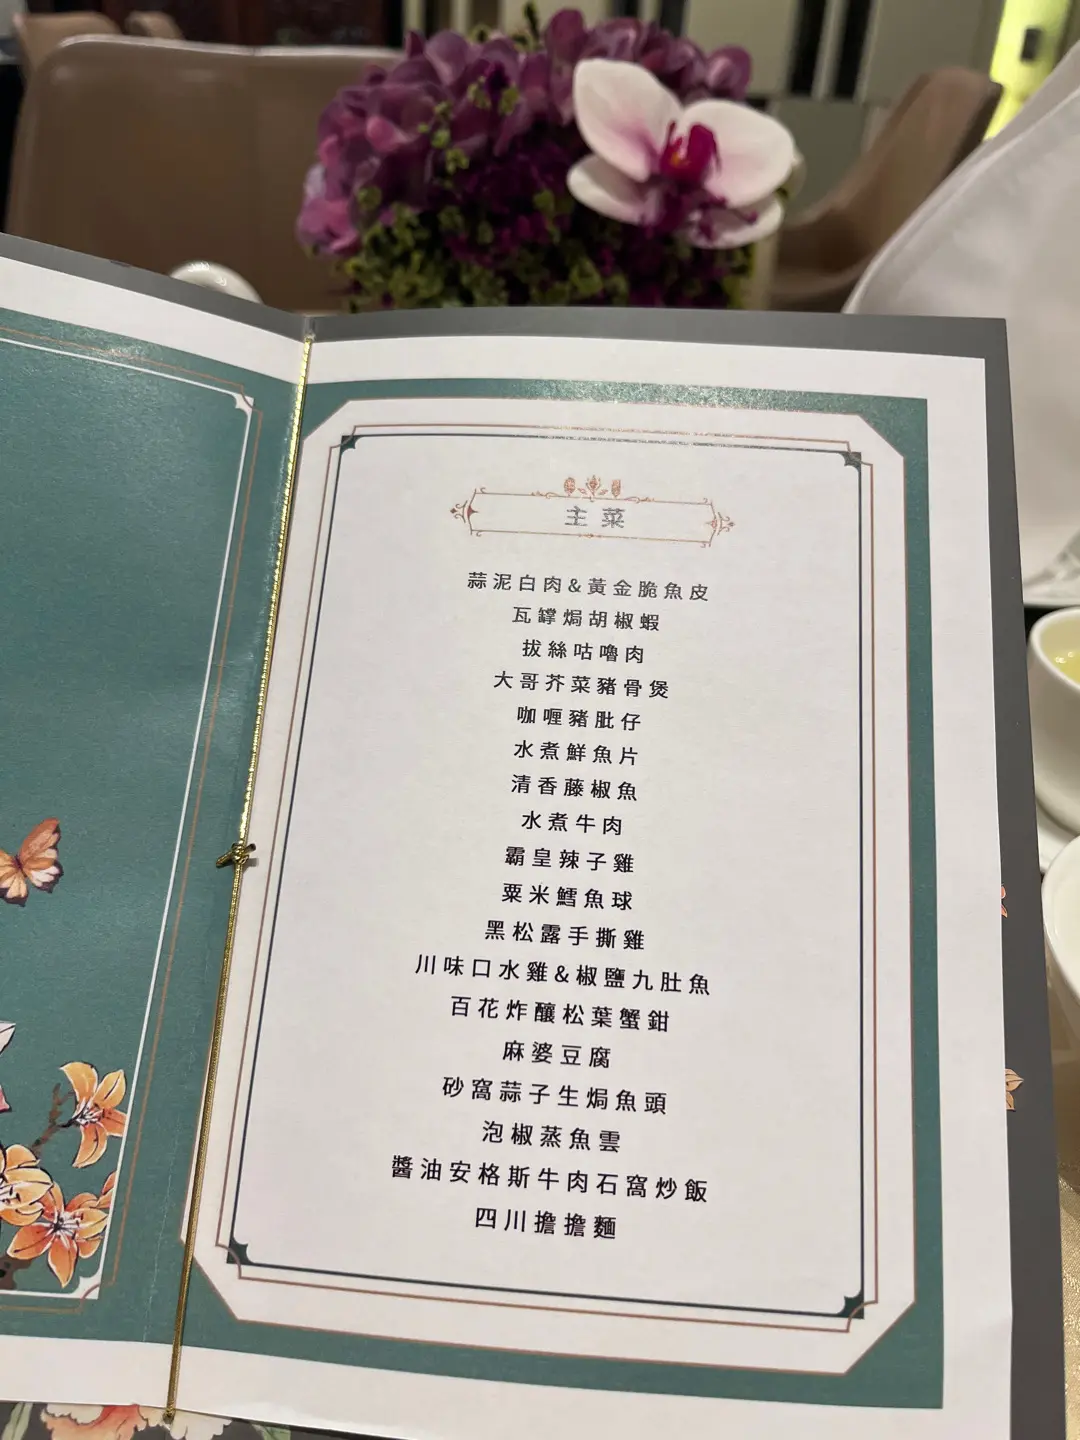 主菜
蒜泥白肉&黃金脆魚皮
瓦罉焗胡椒蝦
拔絲咕嚕肉
大哥芥菜豬骨煲
咖喱豬肶仔
水煮鮮魚片
清香藤椒魚
水煮牛肉
霸皇辣子雞
粟米鱈魚球
黑松露手撕雞
川味口水雞&椒鹽九肚魚
百花炸釀松葉蟹鉗
麻婆豆腐
砂窩蒜子生焗魚頭
泡椒蒸魚雲
醬油安格斯牛肉石窩炒飯
四川擔擔麵